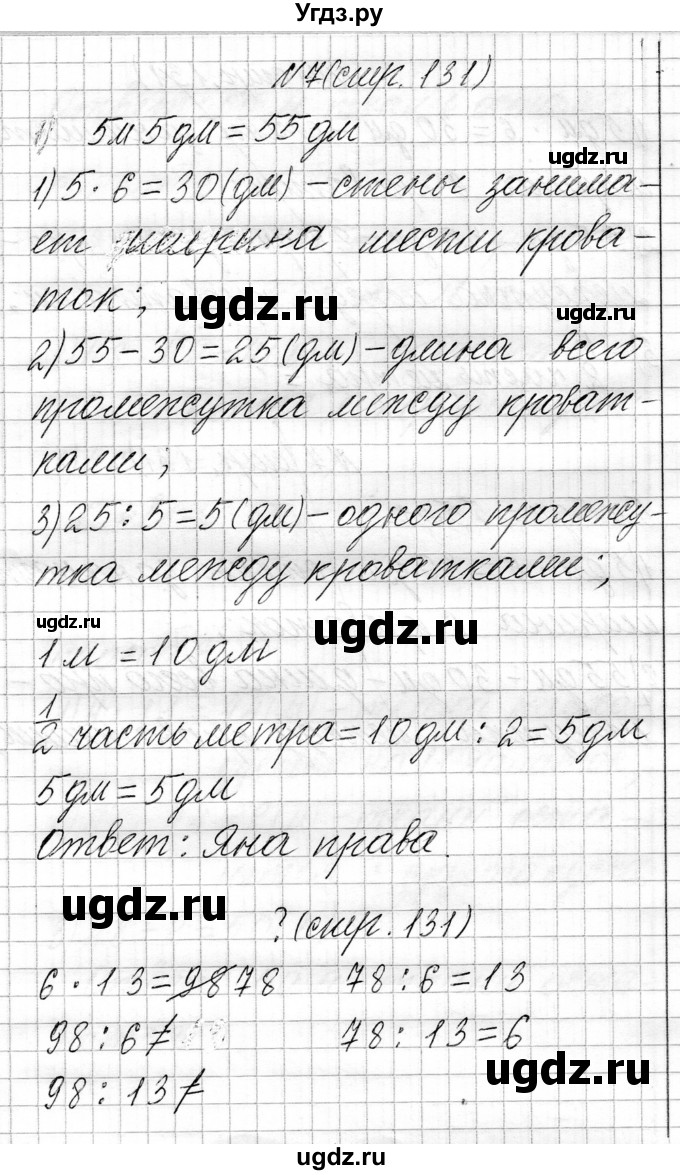 Угдз.ру
N7(стр. 131)
1) 5м 5дм = 55дм
ugdz.ru
1) 5 · 6 = 30(дм) – стены занима-
ет ширина шести крова-
ток;
ugdz.ru
ugdz.ru
2) 55 – 30 = 25(дм) – длина всего
промежутка между кроват-
ками;
3) 25 : 5 = 5(дм) – одного промежу-
тка между кроватками;
ugdz.ru
ugdz.ru
1м = 10дм
1/2 часть метра = 10дм : 2 = 5дм
5дм = 5дм
Ответ: Яна права.
ugdz.ru
? (стр. 131)
6 · 13 = 98 78 78 : 6 = 13
98 : 6 ≠ 78 : 13 = 6
98 : 13 ≠
ugdz.ru
ugdz.ru